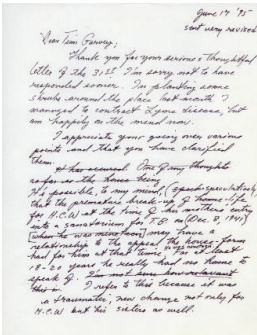 June 17 '95
sent very revised
Dear Tim Garvey;
Thank you for your serious + thoughtful
letter of the 31st I'm sorry not to have
responded sooner. In planting some
shrubs around the place last month I
managed to contract Lyme disease, but
am happily on the mend now.
I appreciate your going over various
points and that you have clarified
them.
It has occurred One of my thoughts
refer on the house being
It's possible, to my mind, (speak speculatively)
that the premature break-up of home life
for H.C.W at the time of his mother's entry
into a sanatorium for TB on (Dec. 8, 1941)
(when he was nineteen) may have a
relationship to the appeal the house-form
had for him at that time, as at least
18-20 years he really had no home to
speak of. I'm not sure how relevant
this is. I refer to this because it was
a traumatic, new change not only for
H.C.W but his sisters as well.